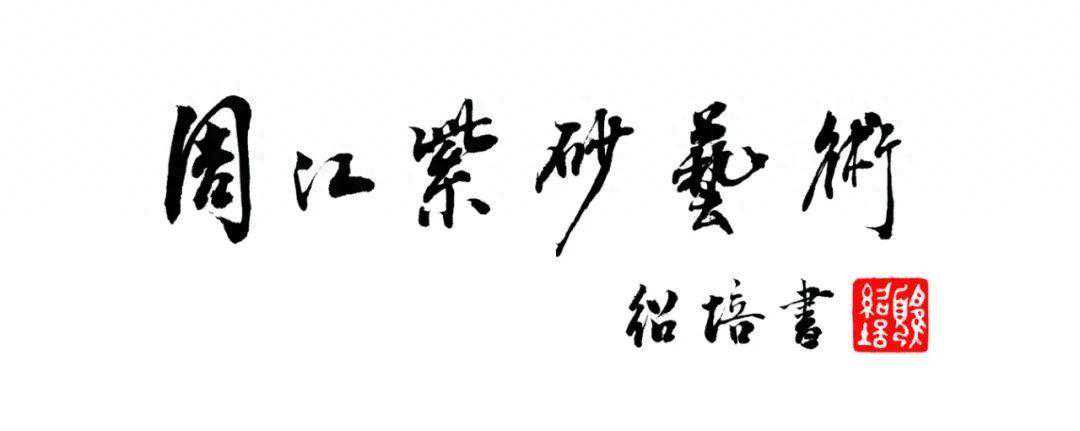 周江紫砂藝術
紹培書